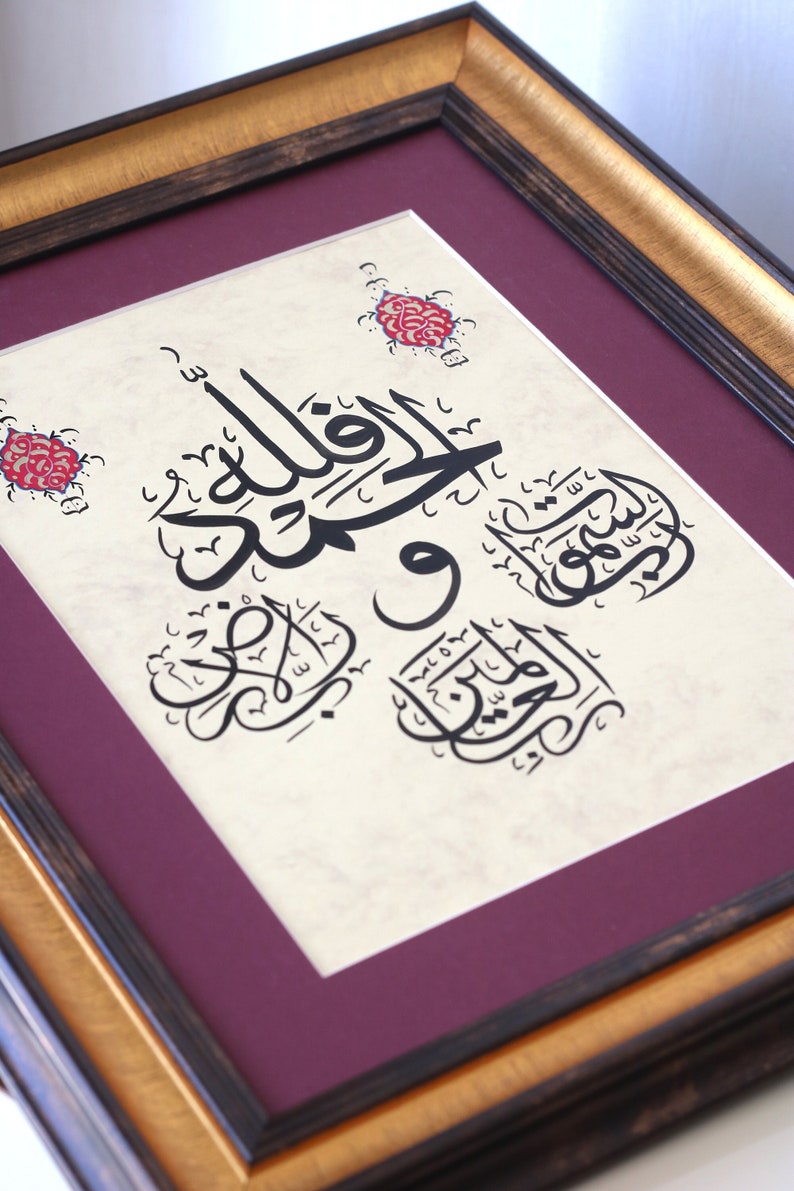 فَلله الحمدُ
ربّ السمٰوات
و
ربّ الارض
ربِّ العالمين